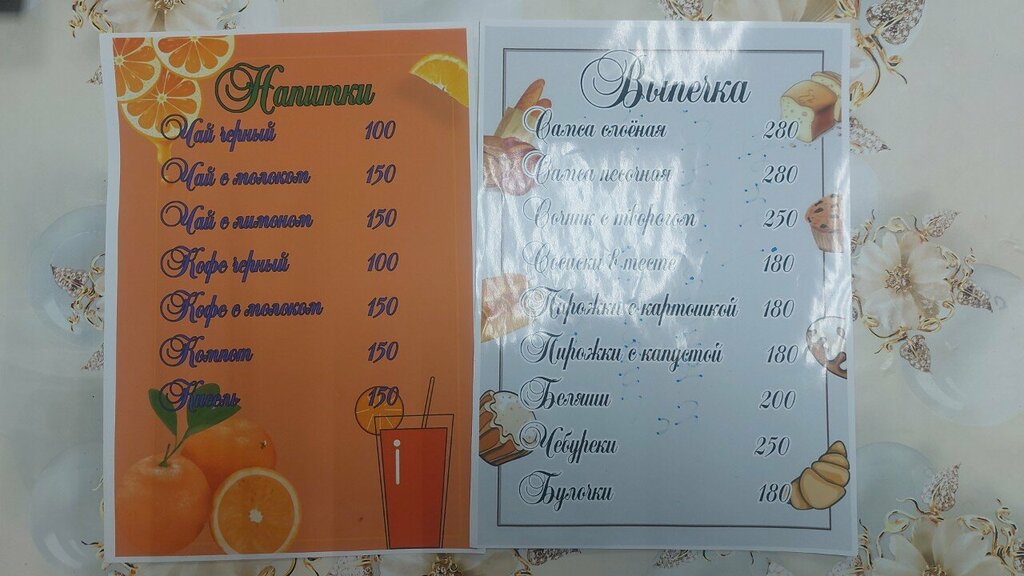 Напитки
Чай черный 100
Чай с молоком 150
Чай с лимоном 150
Кофе черный 100
Кофе с молоком 150
Компот 150
Кисель 150
Выпечка
Самса слоёная 280
Самса песочная 280
Сочник с творогом 250
Сосиски в тесте 180
Пирожки с картошкой 180
Пирожки с капустой 180
Беляши 200
Чебуреки 250
Булочки 180